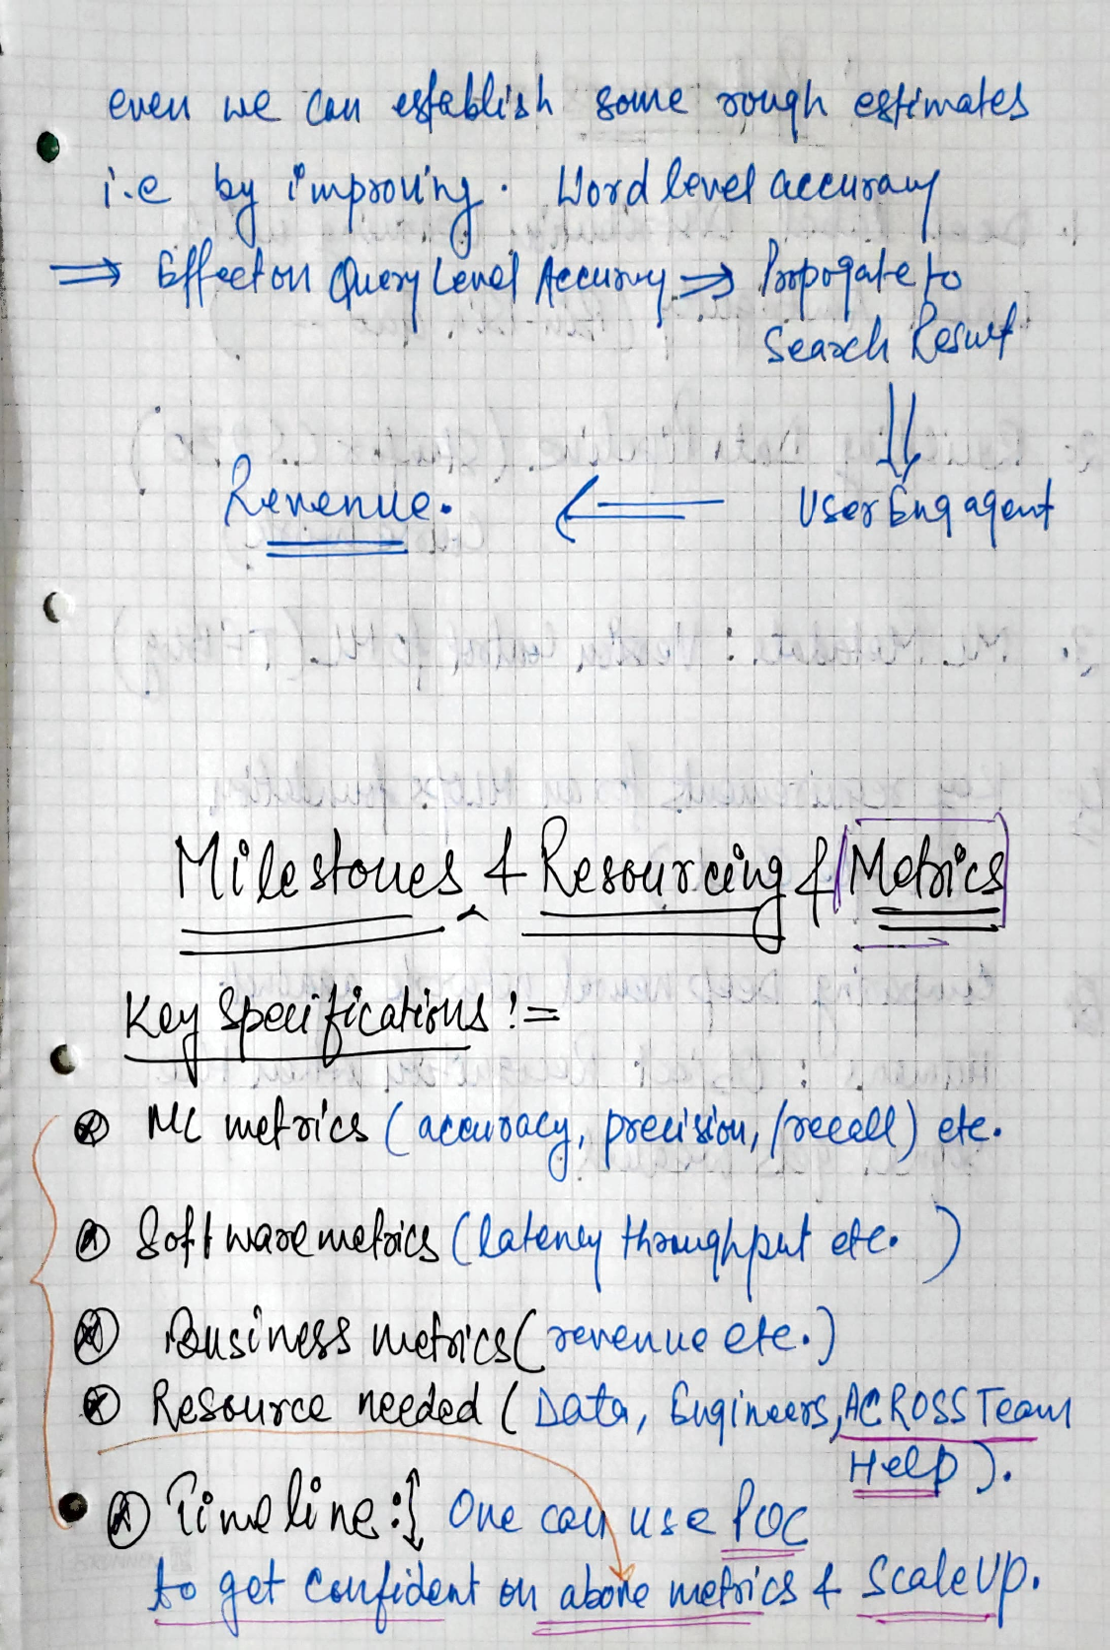 even we can establish some rough estimates
i.e by improving. Word level accuracy
⇒ Effect on Query Level Accuracy ⇒ Propogate to
Search Result
⇓
Revenue. ⇐ User Engagent
Milestones & Resourcing & Metrics
Key Specifications :=
ML metrics (accuracy, precision, /recall) etc.
Software metrics (latency throughput etc. )
Business metrics (revenue etc.)
Resource needed (Data, Engineers, ACROSS Team
Help).
Timeline : One can use POC
to get confident on above metrics & Scale Up.